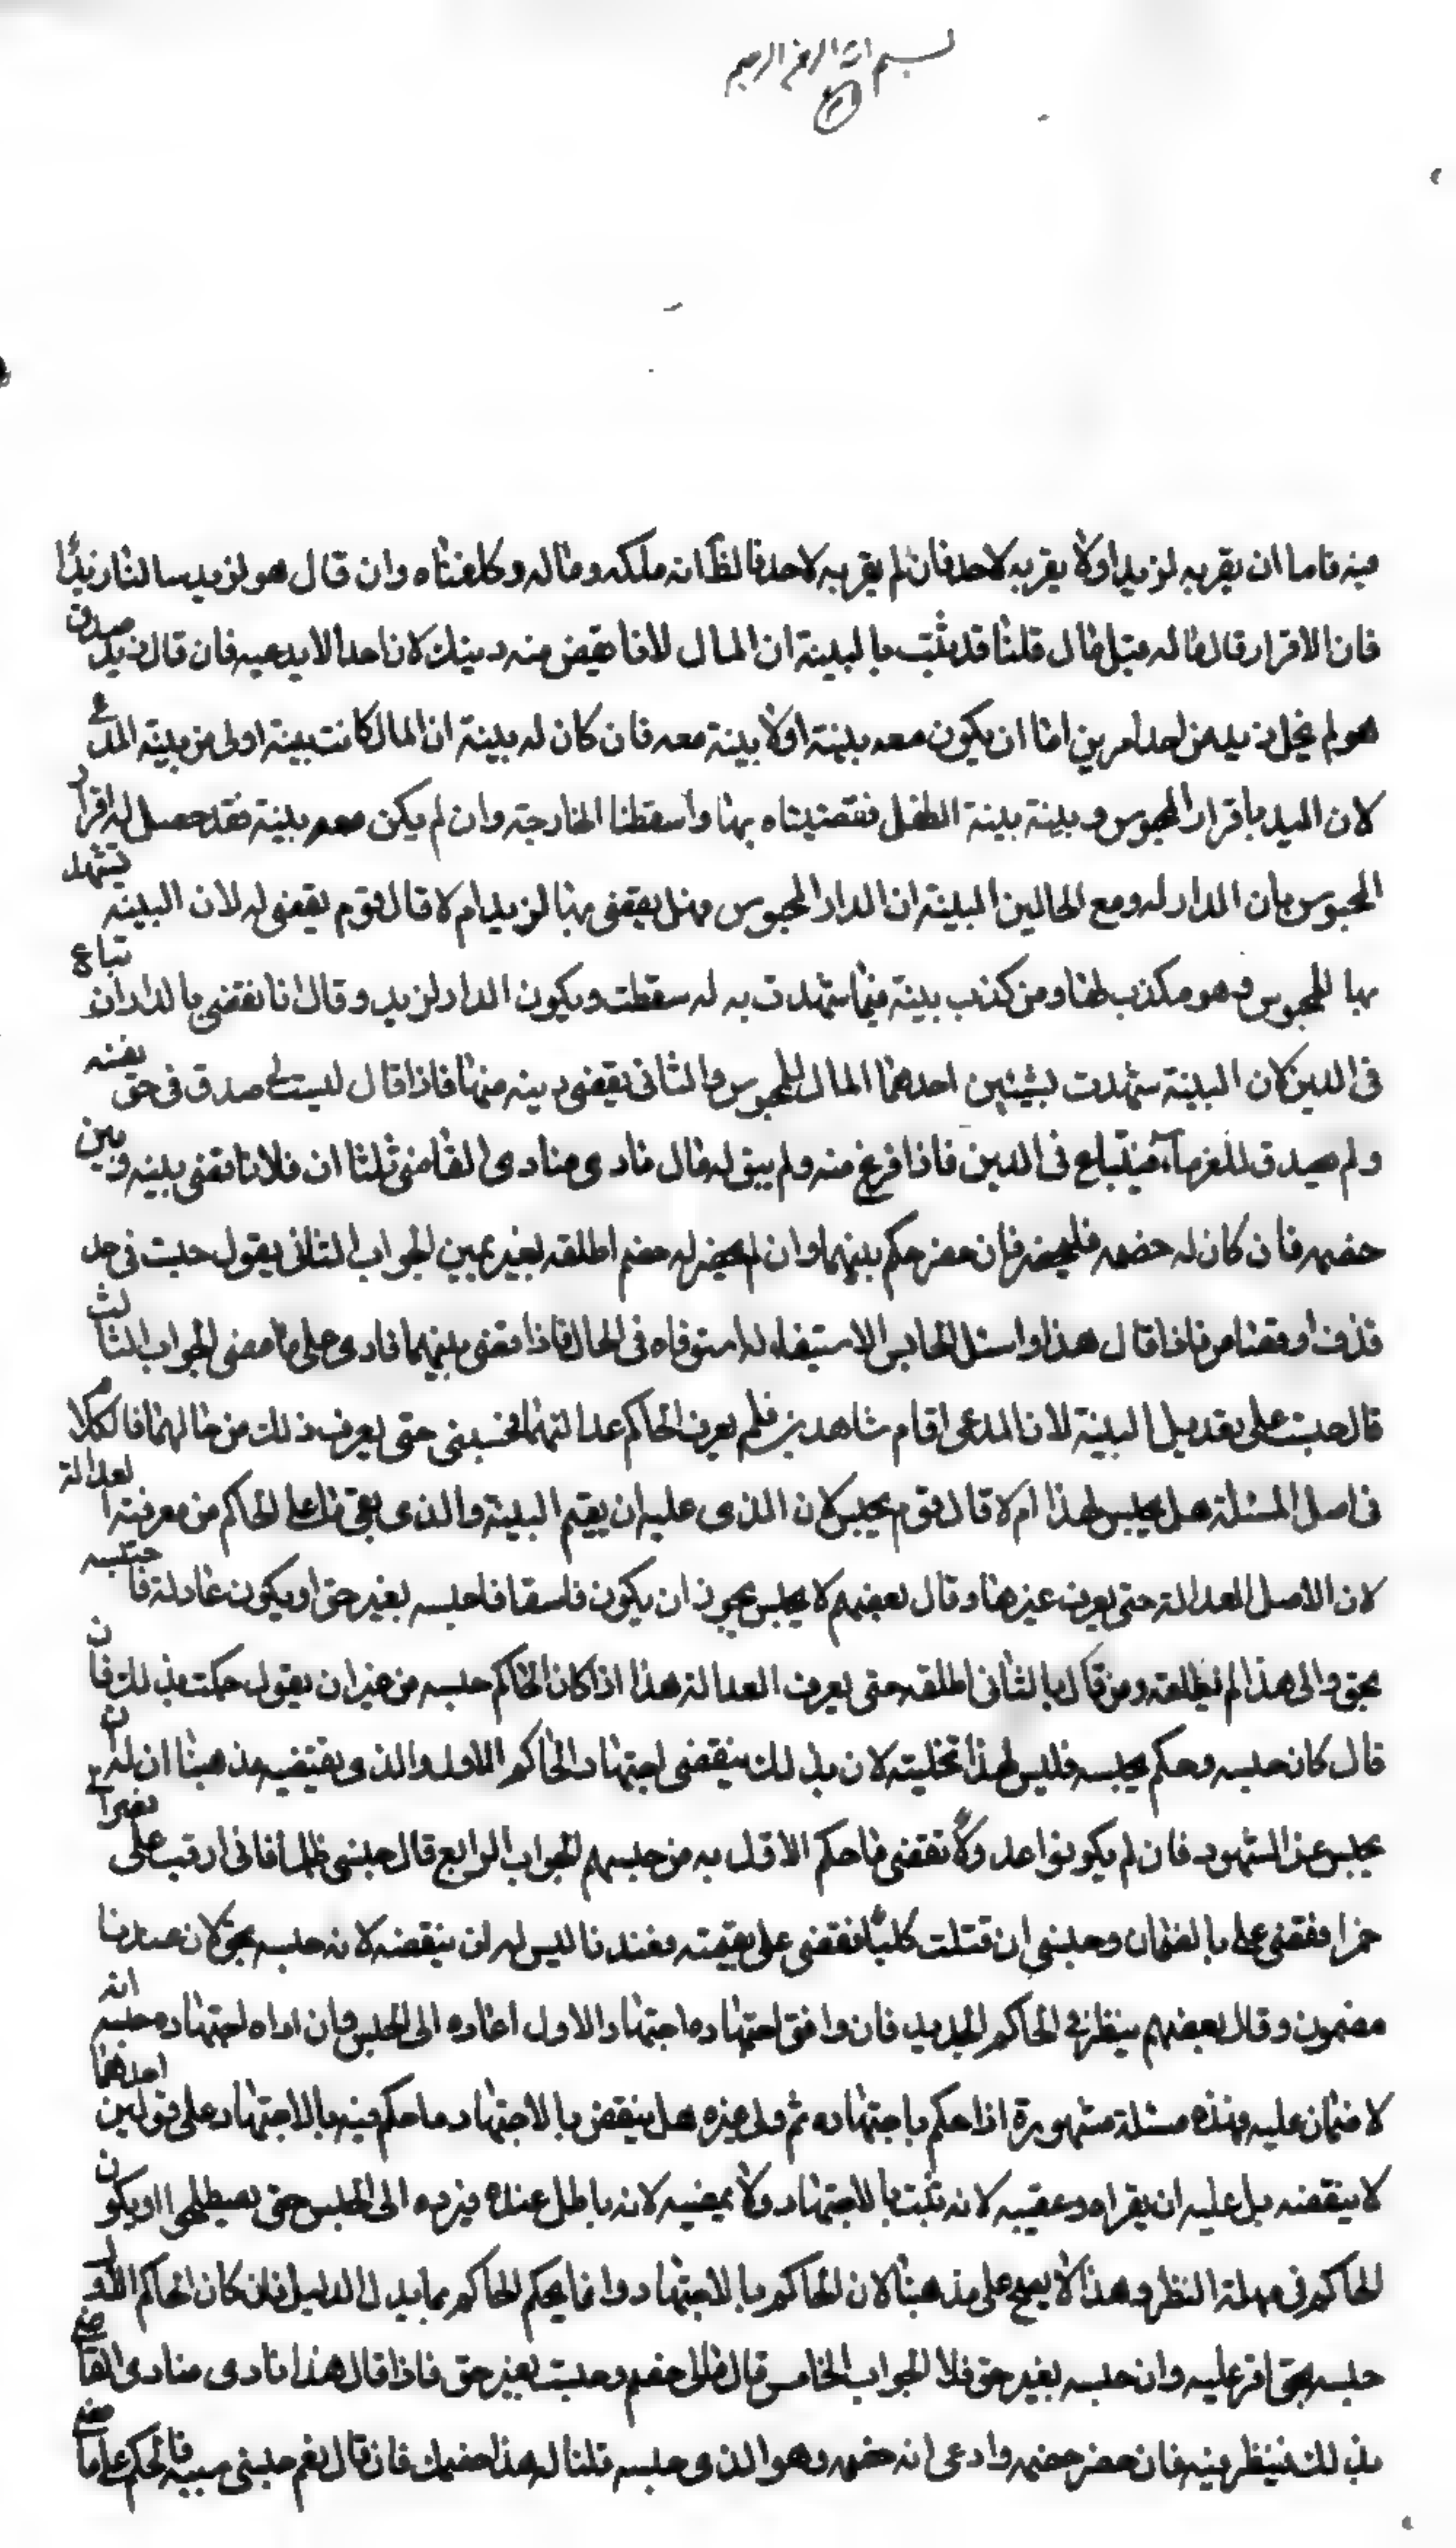 بسم الله الرحمن الرحيم
فيه فاما ان يقر به لزيد اولا يقر به لاحد فان لم يقر به لاحد فالظ انه ملكه وماله وكلفناه وان قال هو لزيد سالنا زيدا
فان الاقرار قال ماله قبل قال قلنا قد ثبت بالبينة ان المال لافا يقض منه دينك لان احدا لا يدعيه فان قال زيد صدق
هو لم يخل زيد من احد امرين اما ان يكون معه بينة اولا بينة معه فان كان له بينة ان المال كانت بينته اولى من بينة المدعى
لان اليد باقرار المحبوس وبينة بينة الطفل فقضيناه بها واسقطنا الخارجة وان لم يكن معه بينة فقد حصل له اقرار
المحبوس بان الدار له ومع الحالين البينة ان الدار للمحبوس فهل يقضى بها لزيد ام لا قال قوم يقضى له لان البينة تشهد
بها للمحبوس وهو مكذب لها ومن كذب بينة فيما شهدت به له سقطت ويكون الدار لزيد وقال انا نقضى بالدار ان تباع
فى الدين لان البينة شهدت بشيئين احدهما المال للمحبوس والثانى يقضى دينه منها فاذا قال ليست لى صدق فى حق نفسه
ولم يصدق للغرماء فيتباع فى الدين فاذا فرغ منه ولم يبق له مال نادى منادى القاضى ثلثا ان فلانا قضى بينه وبين
خصمه فان كان له خصم فليحضر فان حضر حكم بينهما وان لم يحضر له خصم اطلقه بغير يمين الجواب الثانى يقول حبست فى حد
قذف او قصاص فاذا قال هذا واسئل الحابس الاستيفاء له استوفاه فى الحال فاذا قضى بينهما نادى على ما مضى الجواب الثالث
قال حبست على تعديل البينة لان المدعى اقام شاهدين فلم يعرف الحاكم عدالتهما فحبسنى حتى يعرف ذلك من حالهما فالكلام
فى اصل المسئلة هل يحبس لهذا ام لا قال قوم يحبس لان الذى عليه ان يقيم البينة والذى بقى ذلك على الحاكم من معرفة العدالة
لان الاصل العدالة حتى يعرف غيرها وقال بعضهم لا يحبس يجوز ان يكون فاسقا فاحبسه بغير حق او يكون عادلة فاحبسه
بحق والى هذا لم نطلقه ومن قال بالثانى اطلقه حتى يعرف العدالة هذا اذا كان الحاكم حبسه من غير ان يقول حكمت بذلك فان
قال كان حبسه وحكم بحبسه فليس لهذا تخليته لان بذلك ينقضى اجتهاد الحاكم الاول والذى يقتضيه مذهبنا ان له ان
يحبس عن الشهود فان لم يكونوا عدولا نقضى ما حكم الاول به من حبسهم الجواب الرابع قال حبسنى ظلما فانى ارقت على نصرانى
خمرا فقضى على بالضمان وحبسنى ان قتلت كلبا فقضى على بقيمته فعندنا ليس له ان ينقضه لانه حبسه بحق لان عندنا
مضمون وقال بعضهم ينظر فى الحاكم الجديد فان وافق اجتهاده اجتهاد الاول اعاده الى الحبس وان اداه اجتهاده حبسه انه
لا ضمان عليه وهذه مسئلة مشهورة اذا حكم باجتهاده ثم ولى غيره هل ينقض بالاجتهاد ما حكم فيه بالاجتهاد على قولين احدهما
لا ينقضه بل عليه ان يقراه وعقيبه لانه ثبت بالاجتهاد ولا يمضيه لانه باطل عنده فيرده الى الحبس حتى يصطلحى او يكون
الحاكم فى مهلة النظر وهذا لا يصح على مذهبنا لان الحاكم بالاجتهاد وانما يحكم الحاكم بما يدل الدليل فان كان الحاكم الاول
حبسه بحق اقر عليه وان حبسه بغير حق فلا الجواب الخامس قال مالى خصم وحبست بغير حق فاذا قال هذا نادى منادى القاضى
بذلك فينظر فيه فان حضر خصمه وادعى انه خصمه وهو الذى حبسه قلنا له هذا خصمك فان قال نعم حبسنى فيه فالحكم على ما مضى